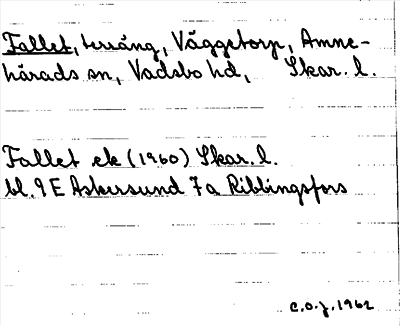 Fallet, terräng, Väggetorp, Amne-
härads sn, Vadsbo hd, Skar. l.
Fallet ek (1960) Skar. l.
bl. 9E Askersund 7a Ribbingsfors
C.O.J. 1962